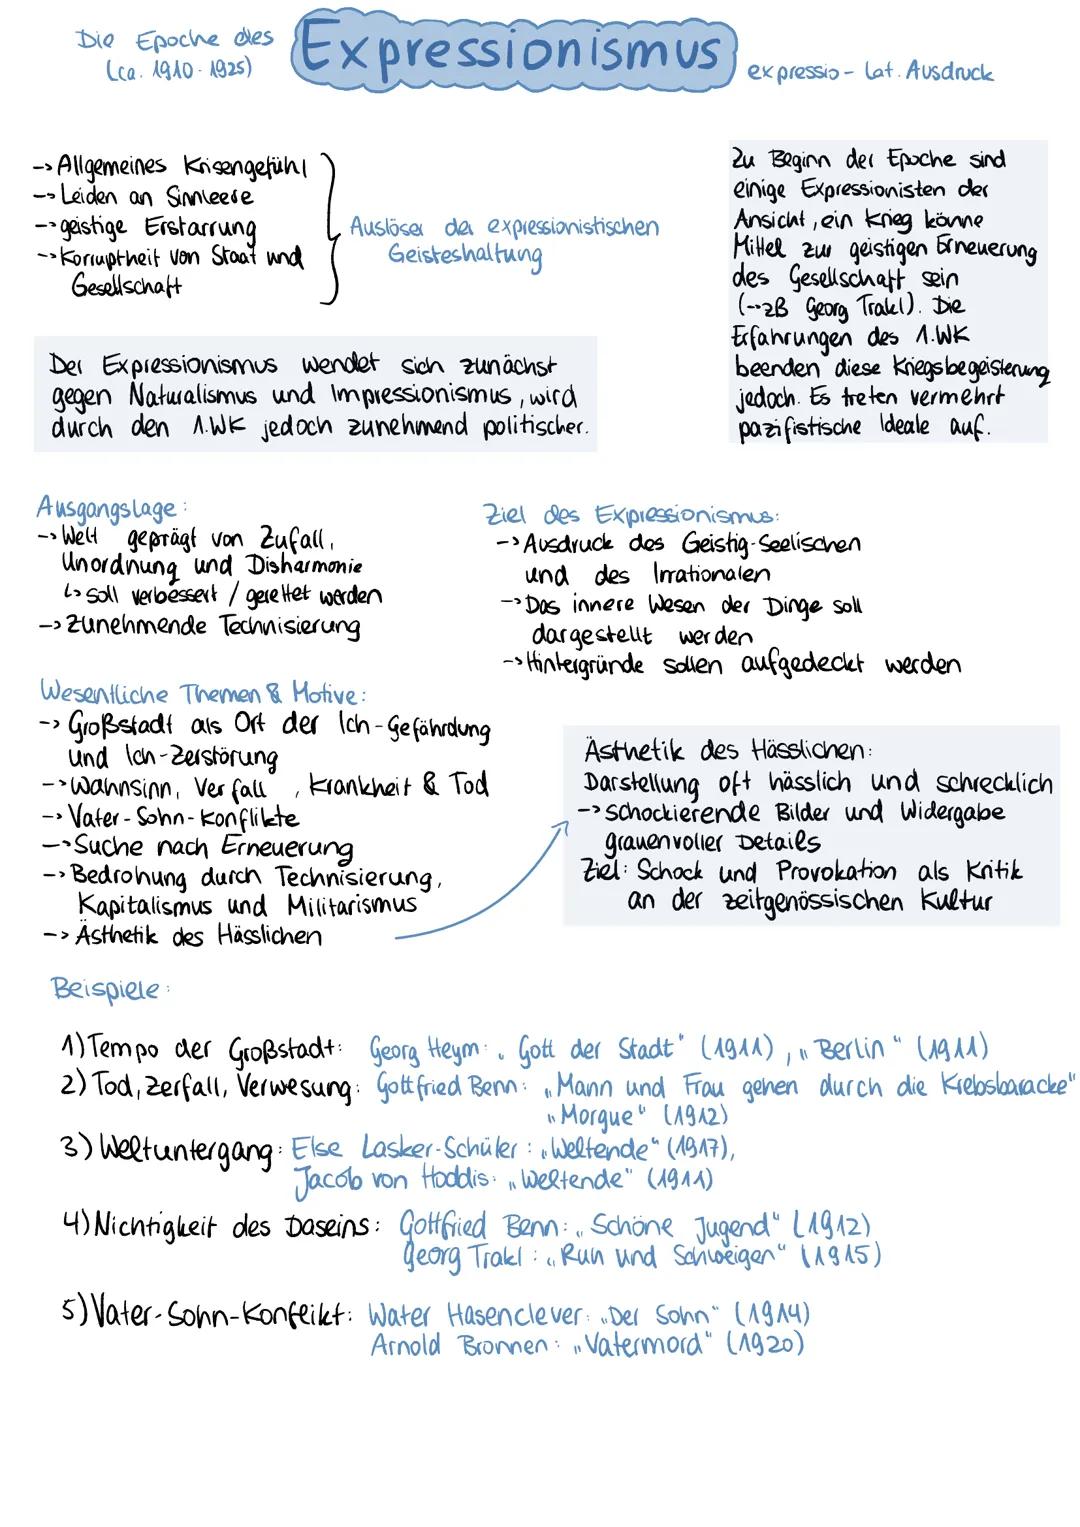 Die Epoche des
(ca. 1910-1925)
Expressionismus
expressio - lat. Ausdruck
-> Allgemeines Krisengefühl
-> Leiden an Sinnleere
-> geistige Erstarrung
-> Korruptheit von Staat und
Gesellschaft
Auslöser der expressionistischen
Geisteshaltung
Zu Beginn der Epoche sind
einige Expressionisten der
Ansicht, ein Krieg könne
Mittel zur geistigen Erneuerung
des Gesellschaft sein
(->zB Georg Trakl). Die
Erfahrungen des 1.WK
beenden diese Kriegsbegeisterung
jedoch. Es treten vermehrt
pazifistische Ideale auf.
Der Expressionismus wendet sich zunächst
gegen Naturalismus und Impressionismus, wird
durch den 1.WK jedoch zunehmend politischer.
Ausgangslage:
-> Welt geprägt von Zufall,
Unordnung und Disharmonie
↳ soll verbessert / gerettet werden
-> Zunehmende Technisierung
Ziel des Expressionismus:
-> Ausdruck des Geistig-Seelischen
und des Irrationalen
-> Das innere Wesen der Dinge soll
dargestellt werden
-> Hintergründe sollen aufgedeckt werden
Wesentliche Themen & Motive:
-> Großstadt als Ort der Ich-Gefährdung
und Ich-Zerstörung
-> Wahnsinn, Verfall, Krankheit & Tod
-> Vater-Sohn-Konflikte
-> Suche nach Erneuerung
-> Bedrohung durch Technisierung,
Kapitalismus und Militarismus
-> Ästhetik des Hässlichen
Ästhetik des Hässlichen:
Darstellung oft hässlich und schrecklich
-> schockierende Bilder und Widergabe
grauenvoller Details
Ziel: Schock und Provokation als Kritik
an der zeitgenössischen Kultur
Beispiele:
1) Tempo der Großstadt: Georg Heym: „Gott der Stadt" (1911), „Berlin" (1911)
2) Tod, Zerfall, Verwesung: Gottfried Benn: „Mann und Frau gehen durch die Krebsbaracke"
„Morgue" (1912)
3) Weltuntergang: Else Lasker-Schüler: „Weltende" (1917),
Jacob von Hoddis: „Weltende" (1911)
4) Nichtigkeit des Daseins: Gottfried Benn: „Schöne Jugend" (1912)
Georg Trakl: „Ruh und Schweigen" (1915)
5) Vater-Sohn-Konflikt: Water Hasenclever: „Der Sohn" (1914)
Arnold Bronnen: „Vatermord" (1920)